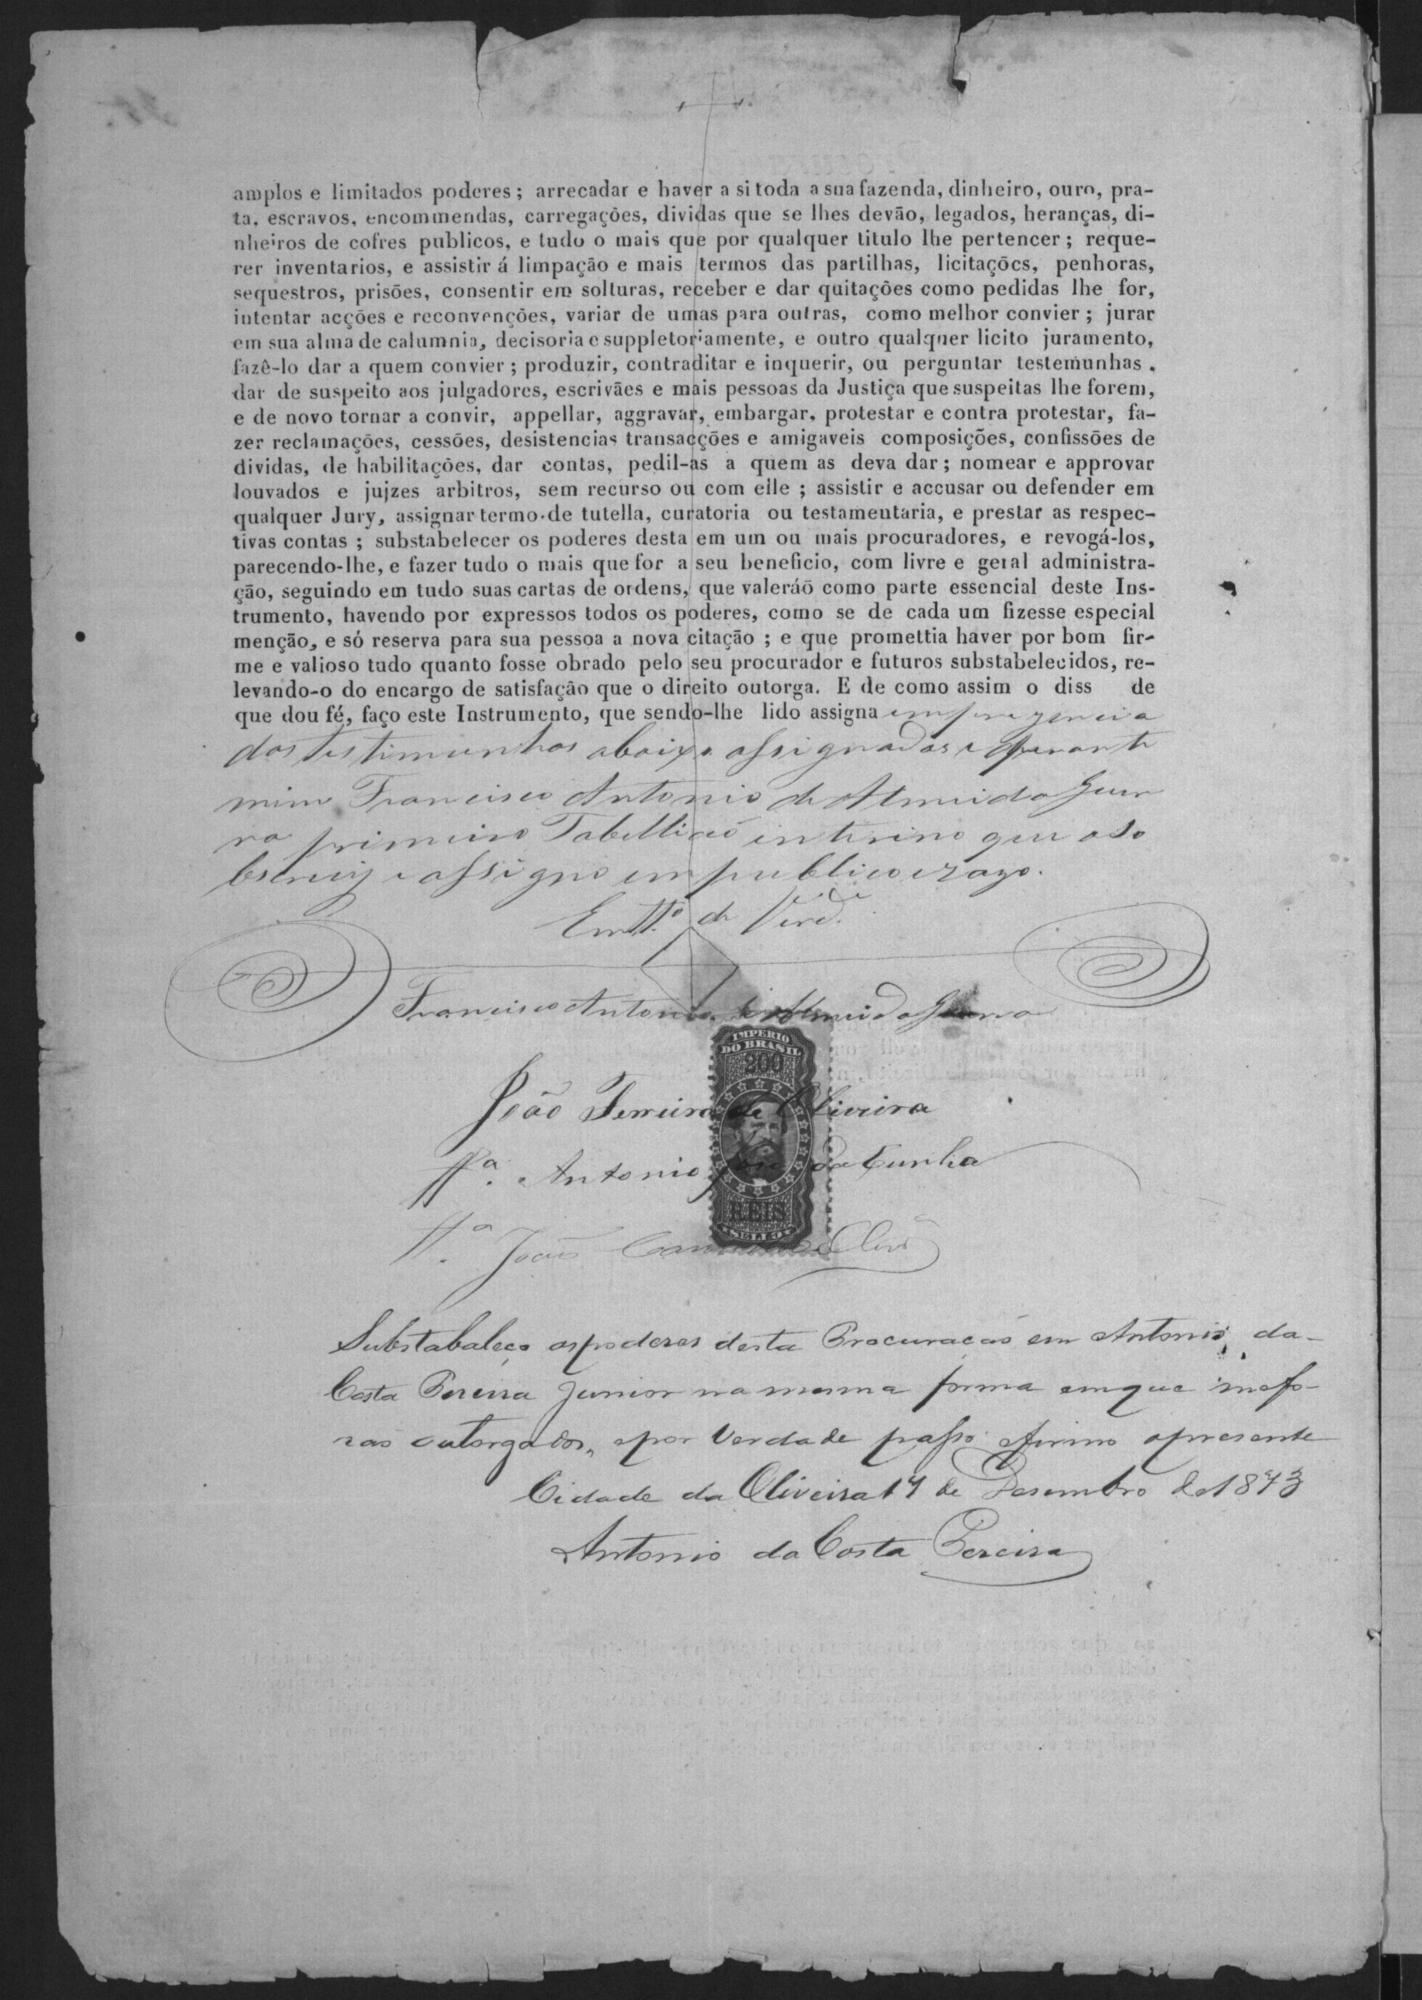 amplos e limitados poderes; arrecadar e haver a si toda a sua fazenda, dinheiro, ouro, pra-
ta, escravos, encommendas, carregações, dividas que se lhes devão, legados, heranças, di-
nheiros de cofres publicos, e tudo o mais que por qualquer titulo lhe pertencer; reque-
rer inventarios, e assistir á limpação e mais termos das partilhas, licitações, penhoras,
sequestros, prisões, consentir em solturas, receber e dar quitações como pedidas lhe for,
intentar acções e reconvenções, variar de umas para outras, como melhor convier; jurar
em sua alma de calumnia, decisoria e suppletoriamente, e outro qualquer licito juramento,
fazê-lo dar a quem convier; produzir, contraditar e inquerir, ou perguntar testemunhas.
dar de suspeito aos julgadores, escrivães e mais pessoas da Justiça que suspeitas lhe forem,
e de novo tornar a convir, appellar, aggravar, embargar, protestar e contra protestar, fa-
zer reclamações, cessões, desistencias transacções e amigaveis composições, confissões de
dividas, de habilitações, dar contas, pedil-as a quem as deva dar; nomear e approvar
louvados e jujzes arbitros, sem recurso ou com elle; assistir e accusar ou defender em
qualquer Jury, assignar termo de tutella, curatoria ou testamentaria, e prestar as respec-
tivas contas; substabelecer os poderes desta em um ou mais procuradores, e revogá-los,
parecendo-lhe, e fazer tudo o mais que for a seu beneficio, com livre e geral administra-
ção, seguindo em tudo suas cartas de ordens, que valeráõ como parte essencial deste Ins-
trumento, havendo por expressos todos os poderes, como se de cada um fizesse especial
menção, e só reserva para sua pessoa a nova citação; e que promettia haver por bom fir-
me e valioso tudo quanto fosse obrado pelo seu procurador e futuros substabelecidos, re-
levando-o do encargo de satisfação que o direito outorga. E de como assim o diss de
que dou fé, faço este Instrumento, que sendo-lhe lido assigna em prezencia
das testimunhas abaixo assignadas e perante
mim Francisco Antonio de Almeida Guer
ra primeiro Tabellião interino que o so
bscrevi e assigno em publico e razo.
Em tt.º de Verd.ᵉ
Francisco Antonio de Almeida Guerra
IMPERIO
DO BRASIL
200
REIS
SELLO
João Ferreira de Oliveira
Tt.ª Antonio José da Cunha
Tt.ª João
Substabaleço os poderes desta Procuração em Antonio da
Costa Pereira Junior na mesma forma em que me fo-
rão outorgados, e por Verdade passo e firmo o presente
Cidade da Oliveira 17 de Desembro de 1873
Antonio da Costa Pereira